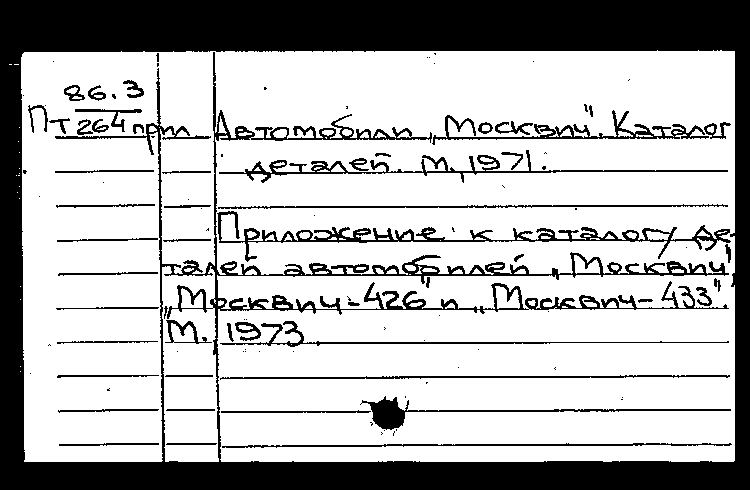 86.3
ПТ264прил Автомобили „Москвич". Каталог
деталей. М., 1971.
Приложение к каталогу де-
талей автомобилей „Москвич",
„Москвич-426" и „Москвич-433".
М., 1973.